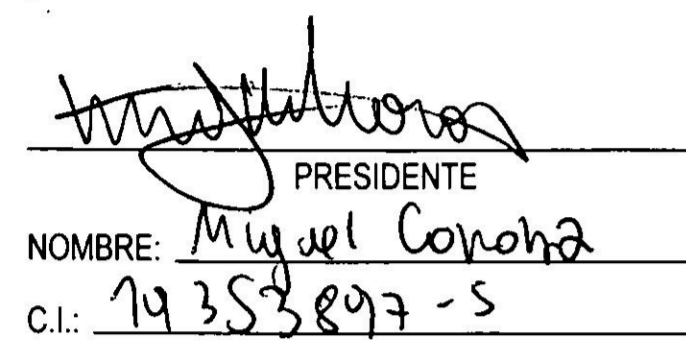 PRESIDENTE
NOMBRE: Miguel
C.I.: 19353897-5